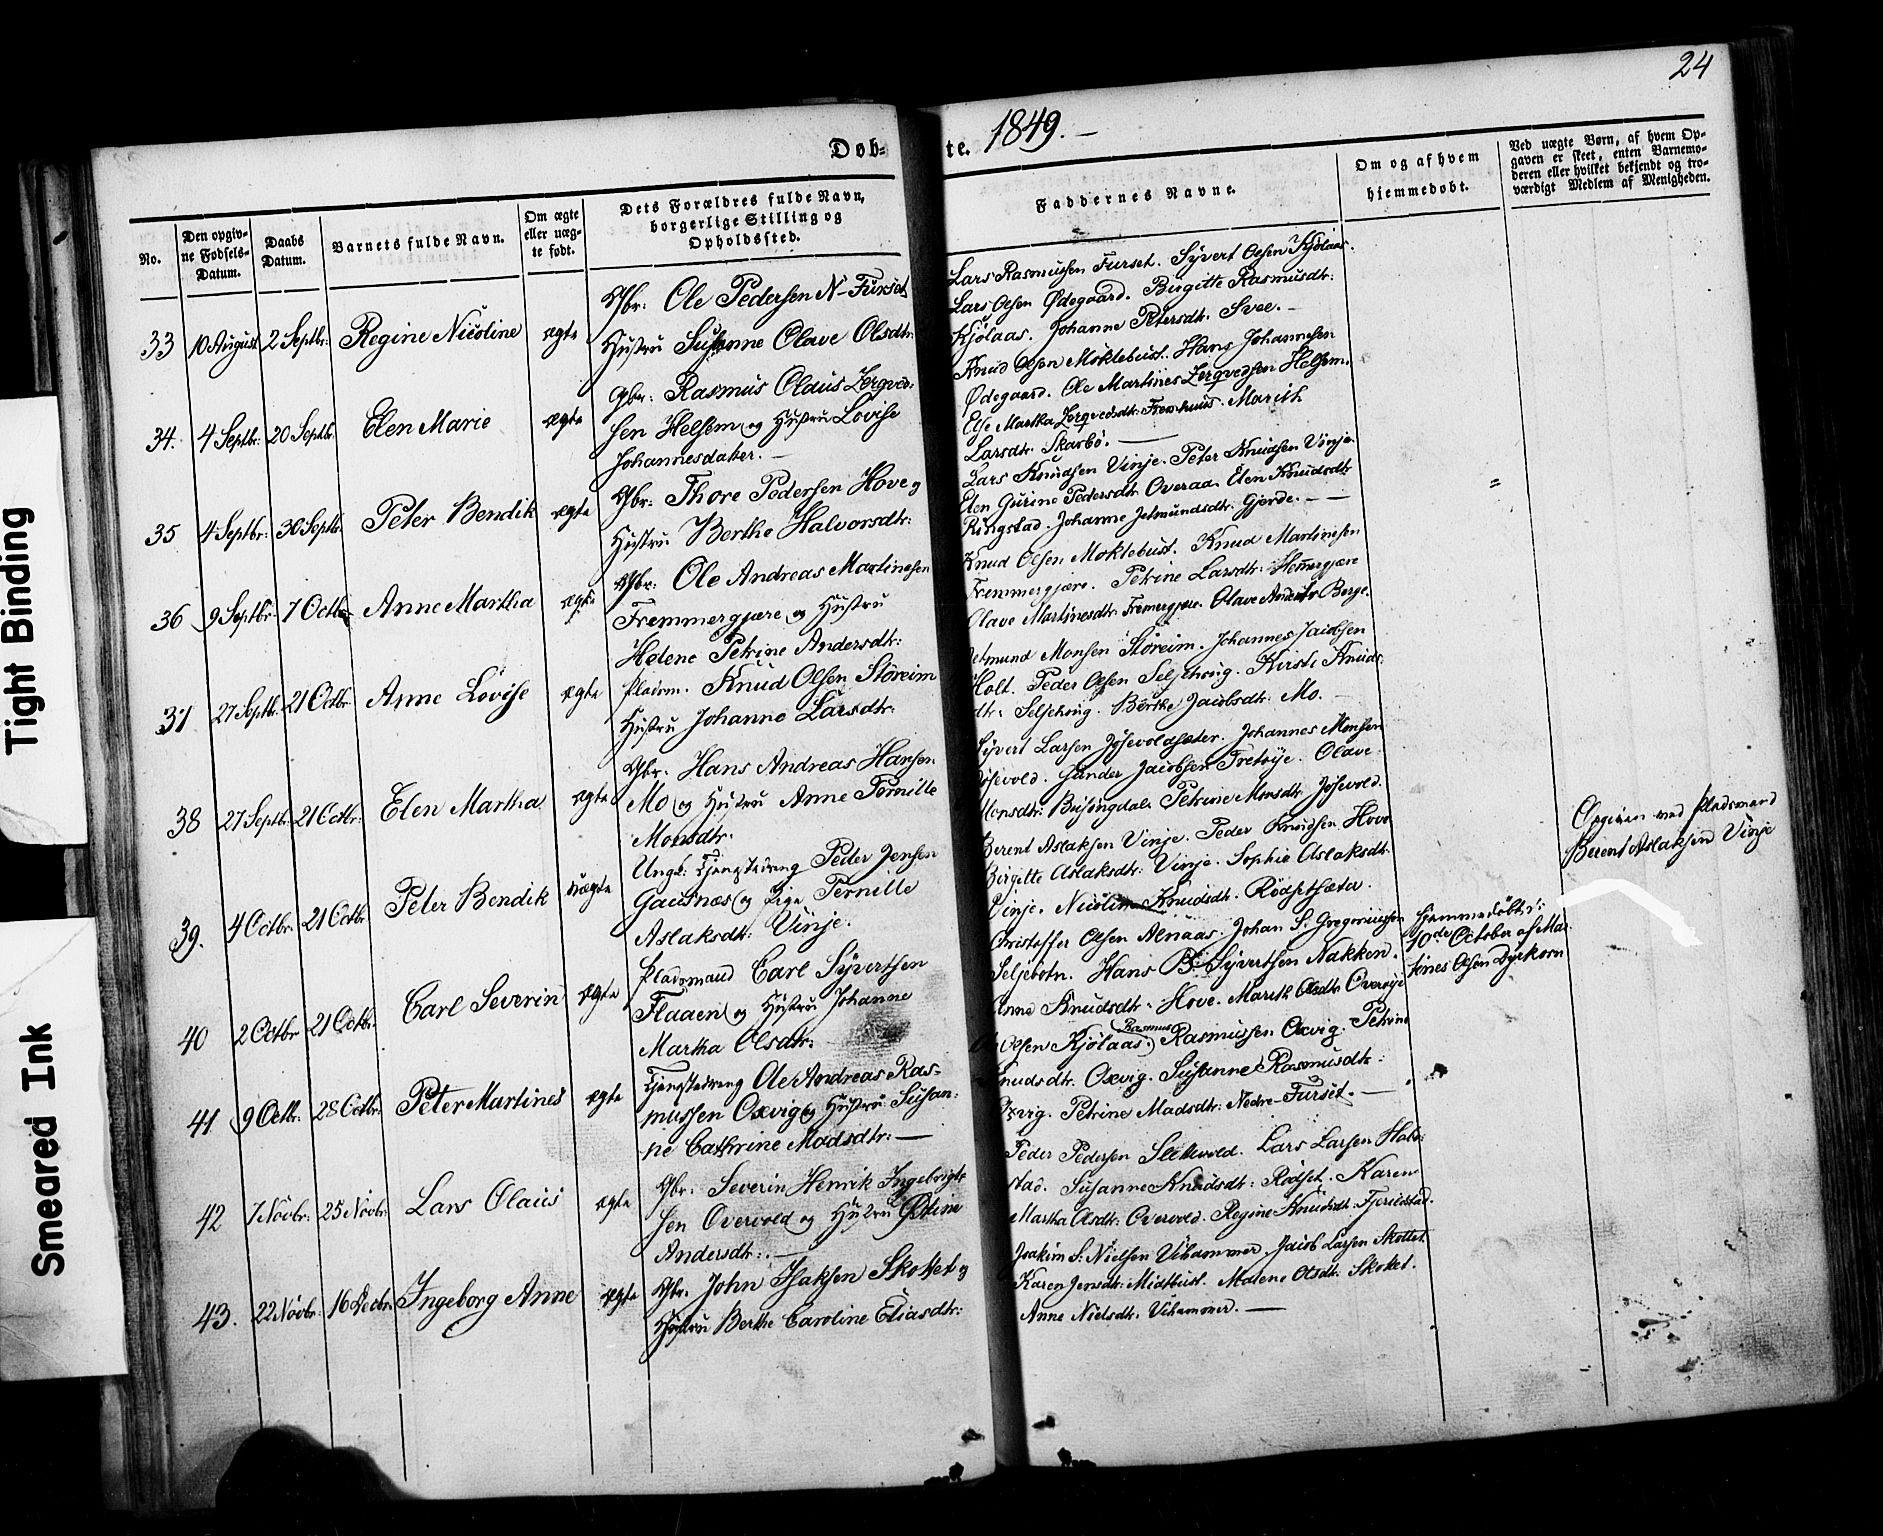 24
Døb-
te. 1849. –
No.
Den opgiv-
ne Fødsels-
Datum.
Daabs
Datum.
Barnets fulde Navn.
Om ægte
eller uæg-
te født.
Dets Forældres fulde Navn,
borgerlige Stilling og
Opholdssted.
Faddernes Navne.
Om og af hvem
hiemmedøbt.
Ved uægte Børn, af hvem Op-
gaven er skeet, enten Barnemo-
deren eller hvilket bekjendt og tro-
værdigt Medlem af Menigheden.
33 10 August 2 Septbr: Regine Nicoline ægte
Gbr: Ole Pedersen N-Furset
Hustru Susanne Olave Olsdtr:
Lars Rasmussen Furset. Syvert Olsen Kjølaas.
Lars Olsen Ødegaard. Birgitte Rasmusdtr:
Kjølaas. Johanne Petersdtr. Svee. –
34. 4 Septbr: 20 Septbr: Elen Marie ægte
Gbr: Rasmus Olaus Zergved-
sen Helsem og Hustru Lovise
Johannesdatter. –
Knud Olsen Moktebust. Hans Johannesen
Ødegaard. Ole Martines Zergvedsen Helsem.
Else Martha Zergvedsdtr: Fremhuus. Marith
Larsdtr: Skarbø. –
35 4 Septbr: 30 Septbr: Peter Bendik ægte
Gbr: Thore Pedersen Hove og
Hustru Berthe Halvorsdtr:
Lars Knudsen Vinje. Peter Knudsen Vinje.
Elen Gurine Pedersdtr. Overaa. Elen Knudsdtr
Ringstad. Johanne Jetmundsdtr: Gjerde. – –
=
36 9 Septbr: 7 Octbr Anne Martha ægte
Gbr: Ole Andreas Martinesen
Fremmergjære og Hustru
Helene Petrine Andersdtr:
Knud Olsen Moktebust. Knud Martinesen
Fremmergjære. Petrine Larsdtr: Hemergjære
Olave Martinesdtr: Fremergjære. Olave Andersdtr Berge.
37 27 Septbr: 21 Octbr. Anne Lovise ægte
Pladsm. Knud Olsen Storeim
Hustru Johanne Larsdtr:
Jetmund Monsen Storeim. Johannes Jacobsen
Holt. Peder Olsen Seljehoug. Kirsti Knuds-
dtr: Seljehoug. Berthe Jacobsdtr: Mo. –
38 27 Septbr: 21 Octbr: Elen Martha ægte
Gbr: Hans Andreas Hansen
Mo og Hustru Anne Pernille
Monsdtr:
Syvert Larsen Josevoldsæter. Johannes Monsen
Josevold. Sander Jacobsen Tretøye. Olave
Monsdtr: Petrine Monsdtr: Josevold.
39. 4 Octbr. 21 Octbr. Peter Bendik uægte
Ungk: Tjenestedreng Peder Jensen
Gausnæs og Pige Pernille
Aslaksdtr: Vinje.
Berent Aslaksen Vinje. Peder Knudsen Hove
Birgitte Aslaksdtr: Vinje. Sophie Aslaksdtr.
Vinje. Nicoline Knudsdtr. Rødsetsæter.
Opgiven ved Pladsmand
Berent Aslaksen Vinje
40 2 Octbr 21 Octbr. Carl Severin ægte
Pladsmand Carl Syvertsen
Flaaen og Hustru Johanne
Martha Olsdtr:
Christoffer Olsen Alnaas. Johan S. Gregoriussen
Seljebotn. Hans B. Syvertsen Nakken.
Anne Knudsdtr: Hove. Marith Olsdtr. Overøye
Hjemmedøbt d:
10de October af Mar-
tines Olsen Dyrkorn
41 9 Octbr. 28 Octbr. Peter Martines ægte
Tjenestedreng Ole Andreas Ras-
mussen Oxvig og Hustru Susan-
ne Cathrine Madsdtr: –
Olsen Kjølaas. Rasmus Rasmussen Oxvig. Petrine
Knudsdtr. Oxvig. Susanne Rasmusdtr:
Oxvig. Petrine Madsdtr: Nedre-Furset. –
42 7 Novbr: 25 Novbr: Lars Olaus ægte
Gbr: Severin Henrik Ingebrigt-
sen Overvold og Hustru Oline
Andersdtr: –
Peder Pedersen Slettevold. Lars Larsen Hals-
stad. Susanne Knudsdtr: Rødset. Karen
Martha Olsdtr: Overvold. Regine Knudsdtr: Fjerdestad.
43. 22 Novbr: 16 Decbr: Ingeborg Anne ægte
Gbr. John Isaksen Skottet og
Hustru Berthe Caroline Eliasdtr:
Joakim S: Nielsen Uhammer. Jacob Larsen Skottet
Karen Jensdtr: Midtbust. Malene Olsdtr: Skottet.
Anne Nielsdtr. Uhammer. –
Tight Binding
Smeared Ink